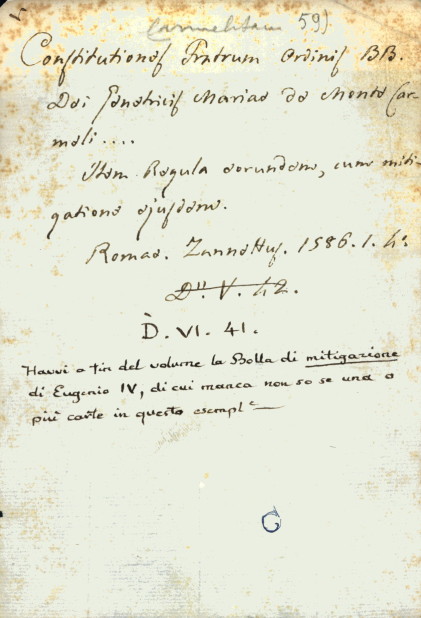 Carmelitane 59)
Constitutiones Fratrum Ordinis BB.
Dei Genetricis Mariae de Monte Car-
meli....
Item Regula eorundem, cum miti-
gatione ejusdem.
Romae. Zannettus. 1586. 1. 4º
D''. V. 42.
D. VI. 41.
Havvi a fin del volume la Bolla di mitigazione
di Eugenio IV, di cui manca non so se una o
più carte in questo esempl.e